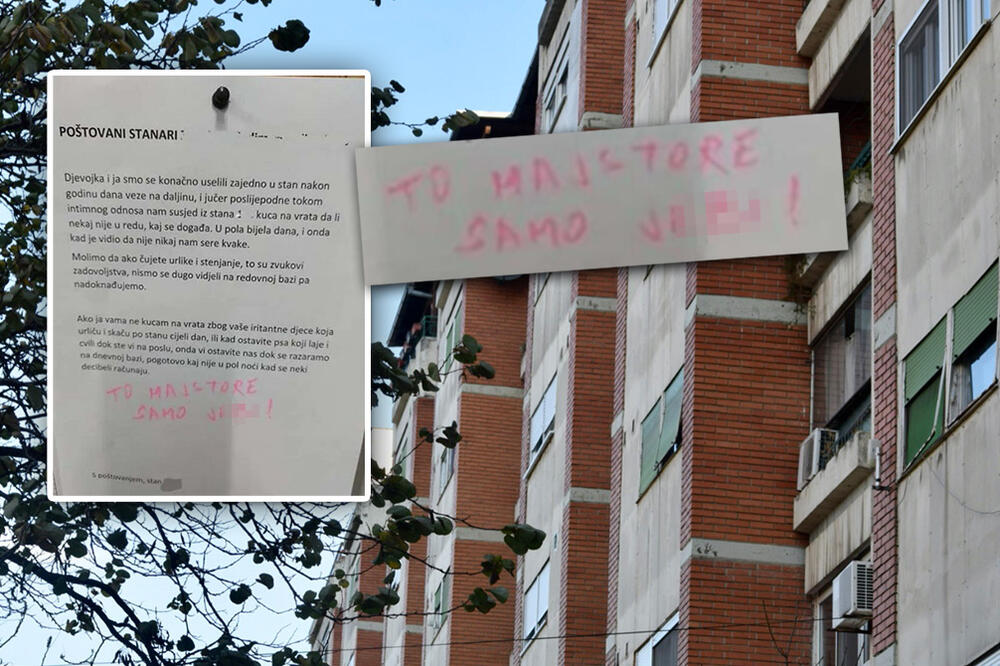 POŠTOVANI STANARI
Djevojka i ja smo se konačno uselili zajedno u stan nakon
godinu dana veze na daljinu, i jučer poslijepodne tokom
intimnog odnosa nam susjed iz stana kuca na vrata da li
nekaj nije u redu, kaj se događa. U pola bijela dana, i onda
kad je vidio da nije nikaj nam sere kvake.
Molimo da ako čujete urlike i stenjanje, to su zvukovi
zadovoljstva, nismo se dugo vidjeli na redovnoj bazi pa
nadoknađujemo.
Ako ja vama ne kucam na vrata zbog vaše iritantne djece koja
urliču i skaču po stanu cijeli dan, ili kad ostavite psa koji laje i
cvili dok ste vi na poslu, onda vi ostavite nas dok se razaramo
na dnevnoj bazi, pogotovo kaj nije u pol noći kad se neki
decibeli računaju.
TO MAJSTORE
SAMO !
S poštovanjem, stan
TO MAJSTORE
SAMO !